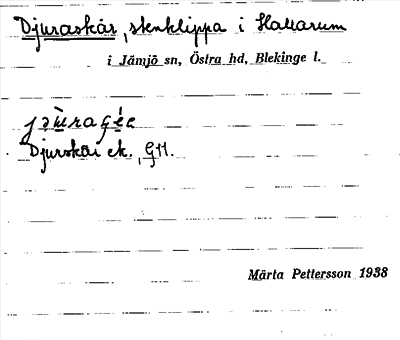 Djuraskär, stenklippa i Hallarum
i Jämjö sn, Östra hd, Blekinge l.
Djurskär ek., GH.
Märta Pettersson 1938